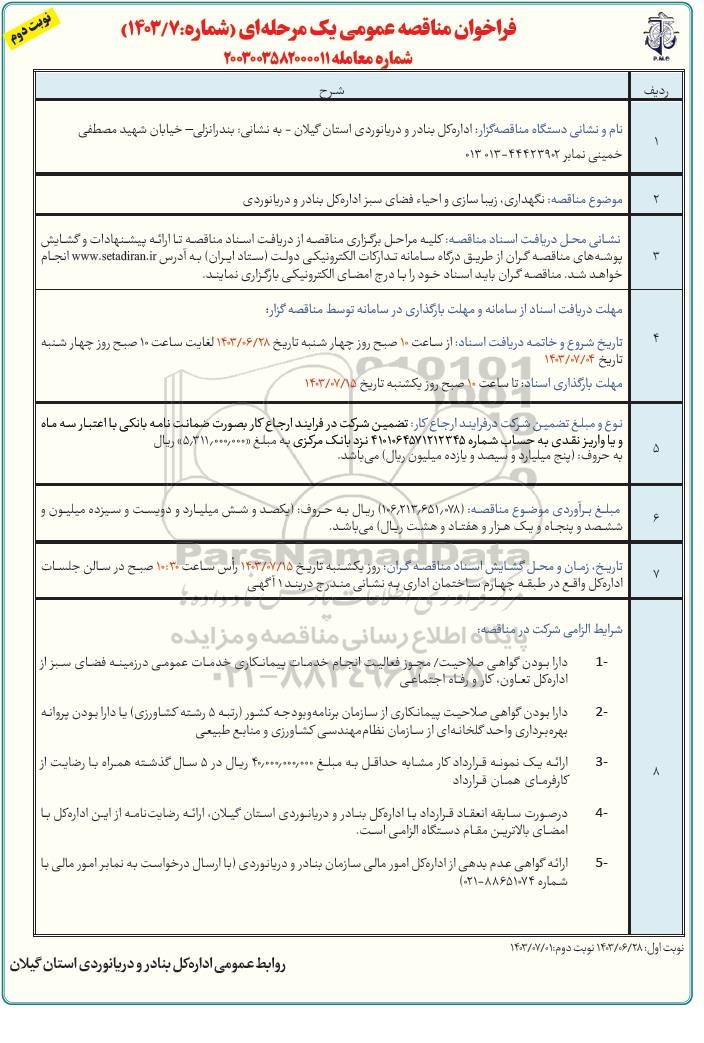 نوبت دوم
فراخوان مناقصه عمومی یک مرحله‌ای (شماره:۱۴۰۳/۷)
شماره معامله ۲۰۰۳۰۰۳۵۸۲۰۰۰۰۱۱
P.M.O
ردیف
شرح
۱
نام و نشانی دستگاه مناقصه‌گزار: اداره‌کل بنادر و دریانوردی استان گیلان - به نشانی: بندرانزلی– خیابان شهید مصطفی
خمینی نمابر ۴۴۴۲۳۹۰۲-۰۱۳ ۰۱۳
۲
موضوع مناقصه: نگهداری، زیبا سازی و احیاء فضای سبز اداره‌کل بنادر و دریانوردی
۳
نشانی محل دریافت اسناد مناقصه: کلیه مراحل برگزاری مناقصه از دریافت اسناد مناقصه تا ارائه پیشنهادات و گشایش
پوشه‌های مناقصه گران از طریق درگاه سامانه تدارکات الکترونیکی دولت (ستاد ایران) به آدرس www.setadiran.ir انجام
خواهد شد. مناقصه گران باید اسناد خود را با درج امضای الکترونیکی بارگزاری نمایند.
۴
مهلت دریافت اسناد از سامانه و مهلت بارگذاری در سامانه توسط مناقصه گزار:
تاریخ شروع و خاتمه دریافت اسناد: از ساعت ۱۰ صبح روز چهار شنبه تاریخ ۱۴۰۳/۰۶/۲۸ لغایت ساعت ۱۰ صبح روز چهار شنبه
تاریخ ۱۴۰۳/۰۷/۰۴
مهلت بارگذاری اسناد: تا ساعت ۱۰ صبح روز یکشنبه تاریخ ۱۴۰۳/۰۷/۱۵
۵
نوع و مبلغ تضمین شرکت درفرایند ارجاع کار: تضمین شرکت در فرایند ارجاع کار بصورت ضمانت نامه بانکی با اعتبار سه ماه
و یا واریز نقدی به حساب شماره ۴۱۰۱۰۶۴۵۷۱۲۱۲۳۴۵ نزد بانک مرکزی به مبلغ «۵٫۳۱۱٫۰۰۰٫۰۰۰» ریال
به حروف: (پنج میلیارد و سیصد و یازده میلیون ریال) می‌باشد.
۶
مبلغ برآوردی موضوع مناقصه: (۱۰۶٫۲۱۳٫۶۵۱٫۰۷۸) ریال به حروف: (یکصد و شش میلیارد و دویست و سیزده میلیون و
ششصد و پنجاه و یک هزار و هفتاد و هشت ریال) می‌باشد.
ParsNamadData
۷
تاریخ، زمان و محل گشایش اسناد مناقصه گران: روز یکشنبه تاریخ ۱۴۰۳/۰۷/۱۵ رأس ساعت ۱۰:۳۰ صبح در سالن جلسات
اداره‌کل واقع در طبقه چهارم ساختمان اداری به نشانی مندرج دربند ۱ آگهی
۸
شرایط الزامی شرکت در مناقصه:
پایگاه اطلاع رسانی مناقصه و مزایده
1- دارا بودن گواهی صلاحیت/ مجوز فعالیت انجام خدمات پیمانکاری خدمات عمومی درزمینه فضای سبز از
اداره‌کل تعاون، کار و رفاه اجتماعی
2- دارا بودن گواهی صلاحیت پیمانکاری از سازمان برنامه‌وبودجه کشور (رتبه ۵ رشته کشاورزی) یا دارا بودن پروانه
بهره‌برداری واحد گلخانه‌ای از سازمان نظام‌مهندسی کشاورزی و منابع طبیعی
3- ارائه یک نمونه قرارداد کار مشابه حداقل به مبلغ ۴۰٫۰۰۰٫۰۰۰٫۰۰۰ ریال در ۵ سال گذشته همراه با رضایت از
کارفرمای همان قرارداد
4- درصورت سابقه انعقاد قرارداد با اداره‌کل بنادر و دریانوردی استان گیلان، ارائه رضایت‌نامه از این اداره‌کل با
امضای بالاترین مقام دستگاه الزامی است.
5- ارائه گواهی عدم بدهی از اداره‌کل امور مالی سازمان بنادر و دریانوردی (با ارسال درخواست به نمابر امور مالی با
شماره ۸۸۶۵۱۰۷۴-۰۲۱)
نوبت اول: ۱۴۰۳/۰۶/۲۸ نوبت دوم: ۱۴۰۳/۰۷/۰۱
روابط عمومی اداره‌کل بنادر و دریانوردی استان گیلان